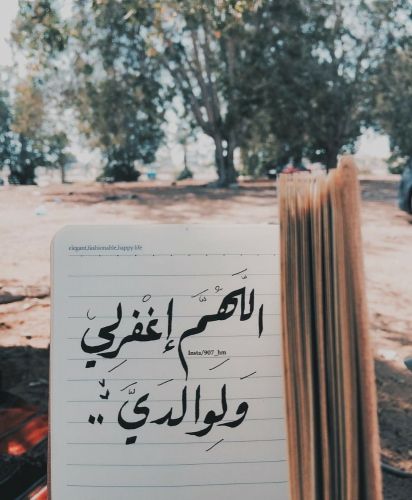 elegant,fashionable,happy.life
اللَّهُمَّ إغْفرِلِي
Insta/907_hm
وَلِوالدَيَّ ..